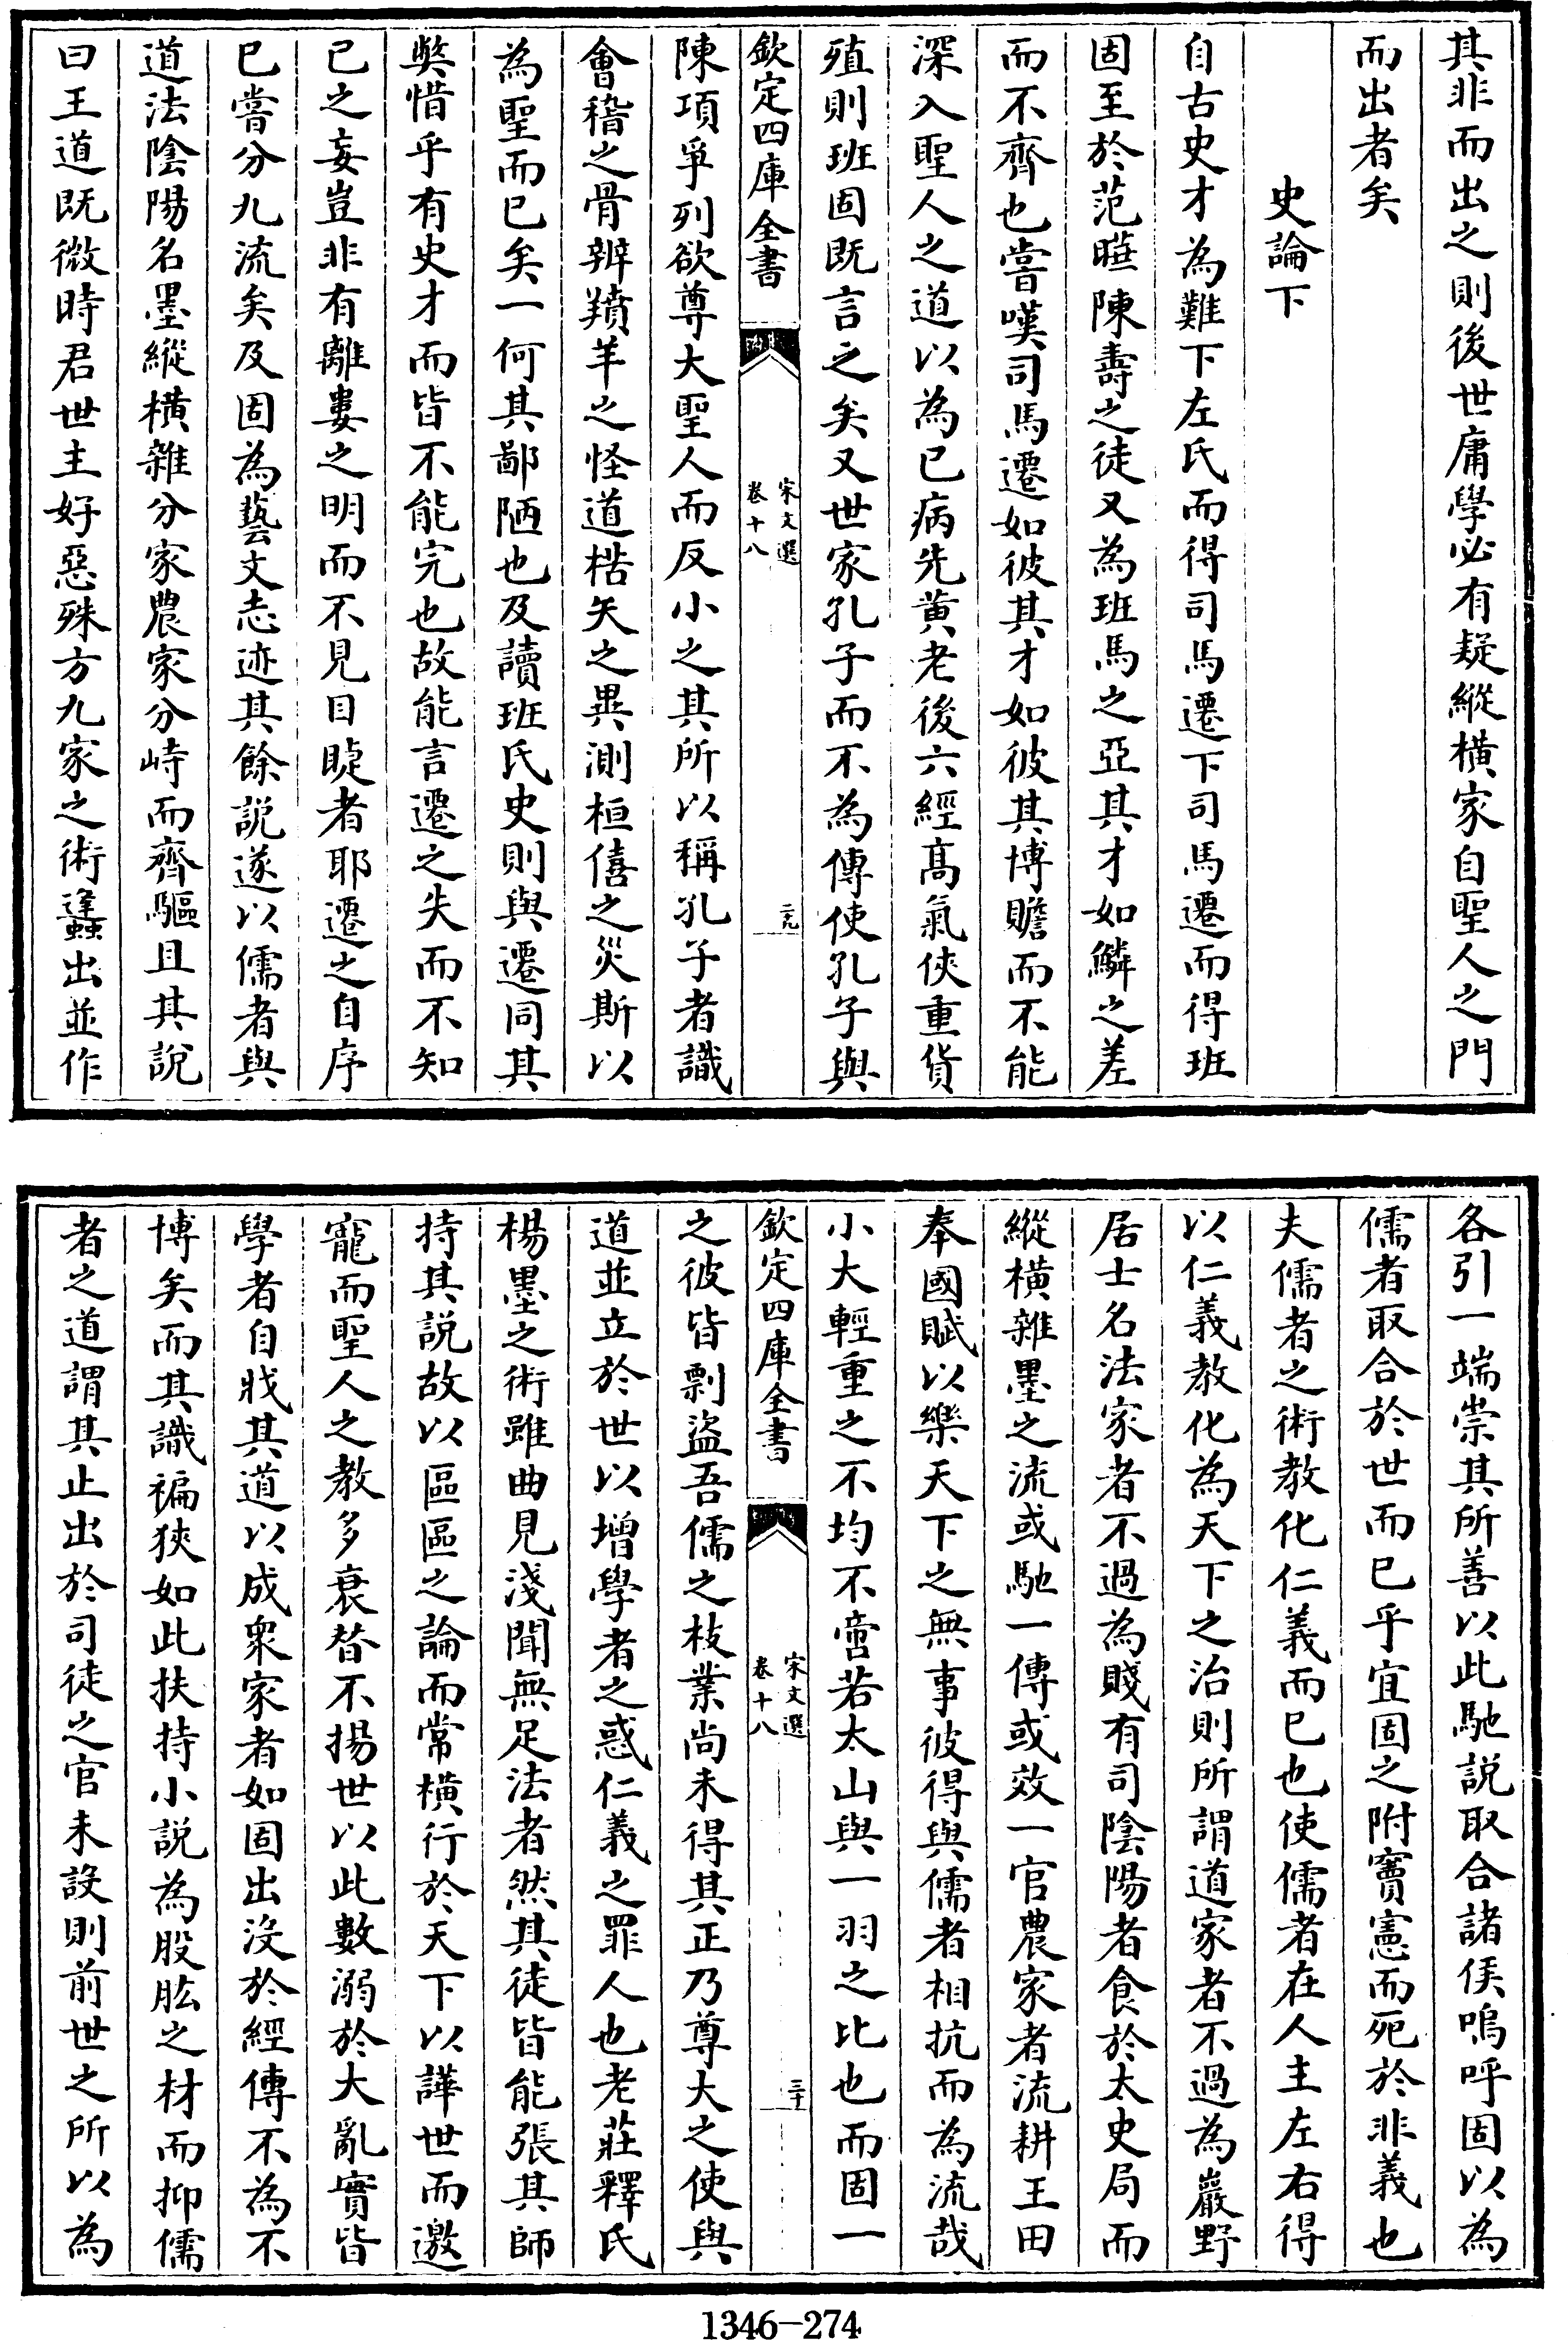 其非而出之則後世庸學必有疑縱横家自聖人之門
而出者矣
史論下
自古史才為難下左氏而得司馬遷下司馬遷而得班
固至於范曄陳壽之徒又為班馬之亞其才如鱗之差
而不齊也嘗嘆司馬遷如彼其才如彼其博贍而不能
深入聖人之道以為已病先黄老後六經髙氣俠重貨
殖則班固既言之矣又世家孔子而不為傳使孔子與
欽定四庫全書
宋文選
卷十八
二九
陳項爭列欲尊大聖人而反小之其所以稱孔子者識
㑹稽之骨辨羵羊之怪道楛矢之異測桓僖之災斯以
為聖而已矣一何其鄙陋也及讀班氏史則與遷同其
獘惜乎有史才而皆不能完也故能言遷之失而不知
已之妄豈非有離婁之明而不見目睫者耶遷之自序
已嘗分九流矣及固為藝文志迹其餘説遂以儒者與
道法陰陽名墨縱横雜分家農家分峙而齊驅且其說
曰王道既微時君世主好惡殊方九家之術蠭出並作
各引一端崇其所善以此馳説取合諸侯嗚呼固以為
儒者取合於世而已乎宜固之附竇憲而死於非義也
夫儒者之術教化仁義而已也使儒者在人主左右得
以仁義教化為天下之治則所謂道家者不過為巖野
居士名法家者不過為賤有司陰陽者食於太史局而
縱横雜墨之流或馳一傳或效一官農家者流耕王田
奉國賦以樂天下之無事彼得與儒者相抗而為流哉
小大輕重之不均不啻若太山與一羽之比也而固一
欽定四庫全書
宋文選
卷十八
三十
之彼皆剽盜吾儒之枝業尚未得其正乃尊大之使與
道並立於世以增學者之惑仁義之罪人也老莊釋氏
楊墨之術雖曲見淺聞無足法者然其徒皆能張其師
持其説故以區區之論而常横行於天下以譁世而邀
寵而聖人之教多衰替不揚世以此數溺於大亂實皆
學者自戕其道以成衆家者如固出没於經傳不為不
博矣而其識褊狹如此扶持小説為股肱之材而抑儒
者之道謂其止出於司徒之官未設則前世之所以為
1346-274